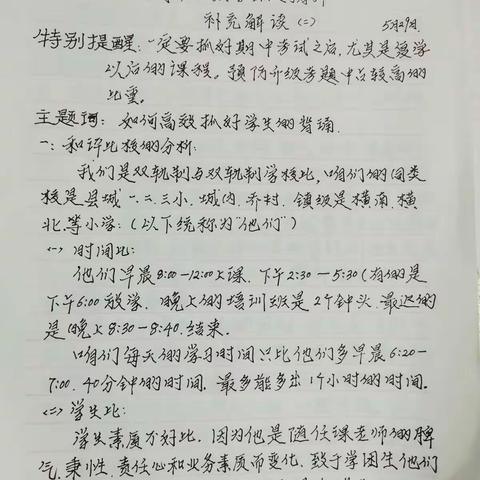 补充解读(二)
5月29日
特别提醒:一定要抓好期中考试之后,尤其是复学
以后的课程。预防升级考题中占较高的
比重。
主题词:如何高效抓好学生的背诵.
一:和评比校的分析:
我们是双轨制与双轨制学校比,咱们的同类
校是县城一、二、三小.城内.乔村.镇级是横南.横
北.等小学:(以下统称为"他们")
(一)时间比:
他们早晨8:00—12:00上课.下午2:30—5:30(有的是
下午6:00放学.晚上的培训班是2个钟头.最迟的
是晚上8:30-8:40.结束.
咱们每天的学习时间只比他们多早晨6:20-
7:00.40分钟的时间.最多能多出1个小时的时间.
(二)学生比:
学生素质不好比.因为他是随任课老师的脾
气.秉性.责任心和业务素质而变化.致于学困生他们